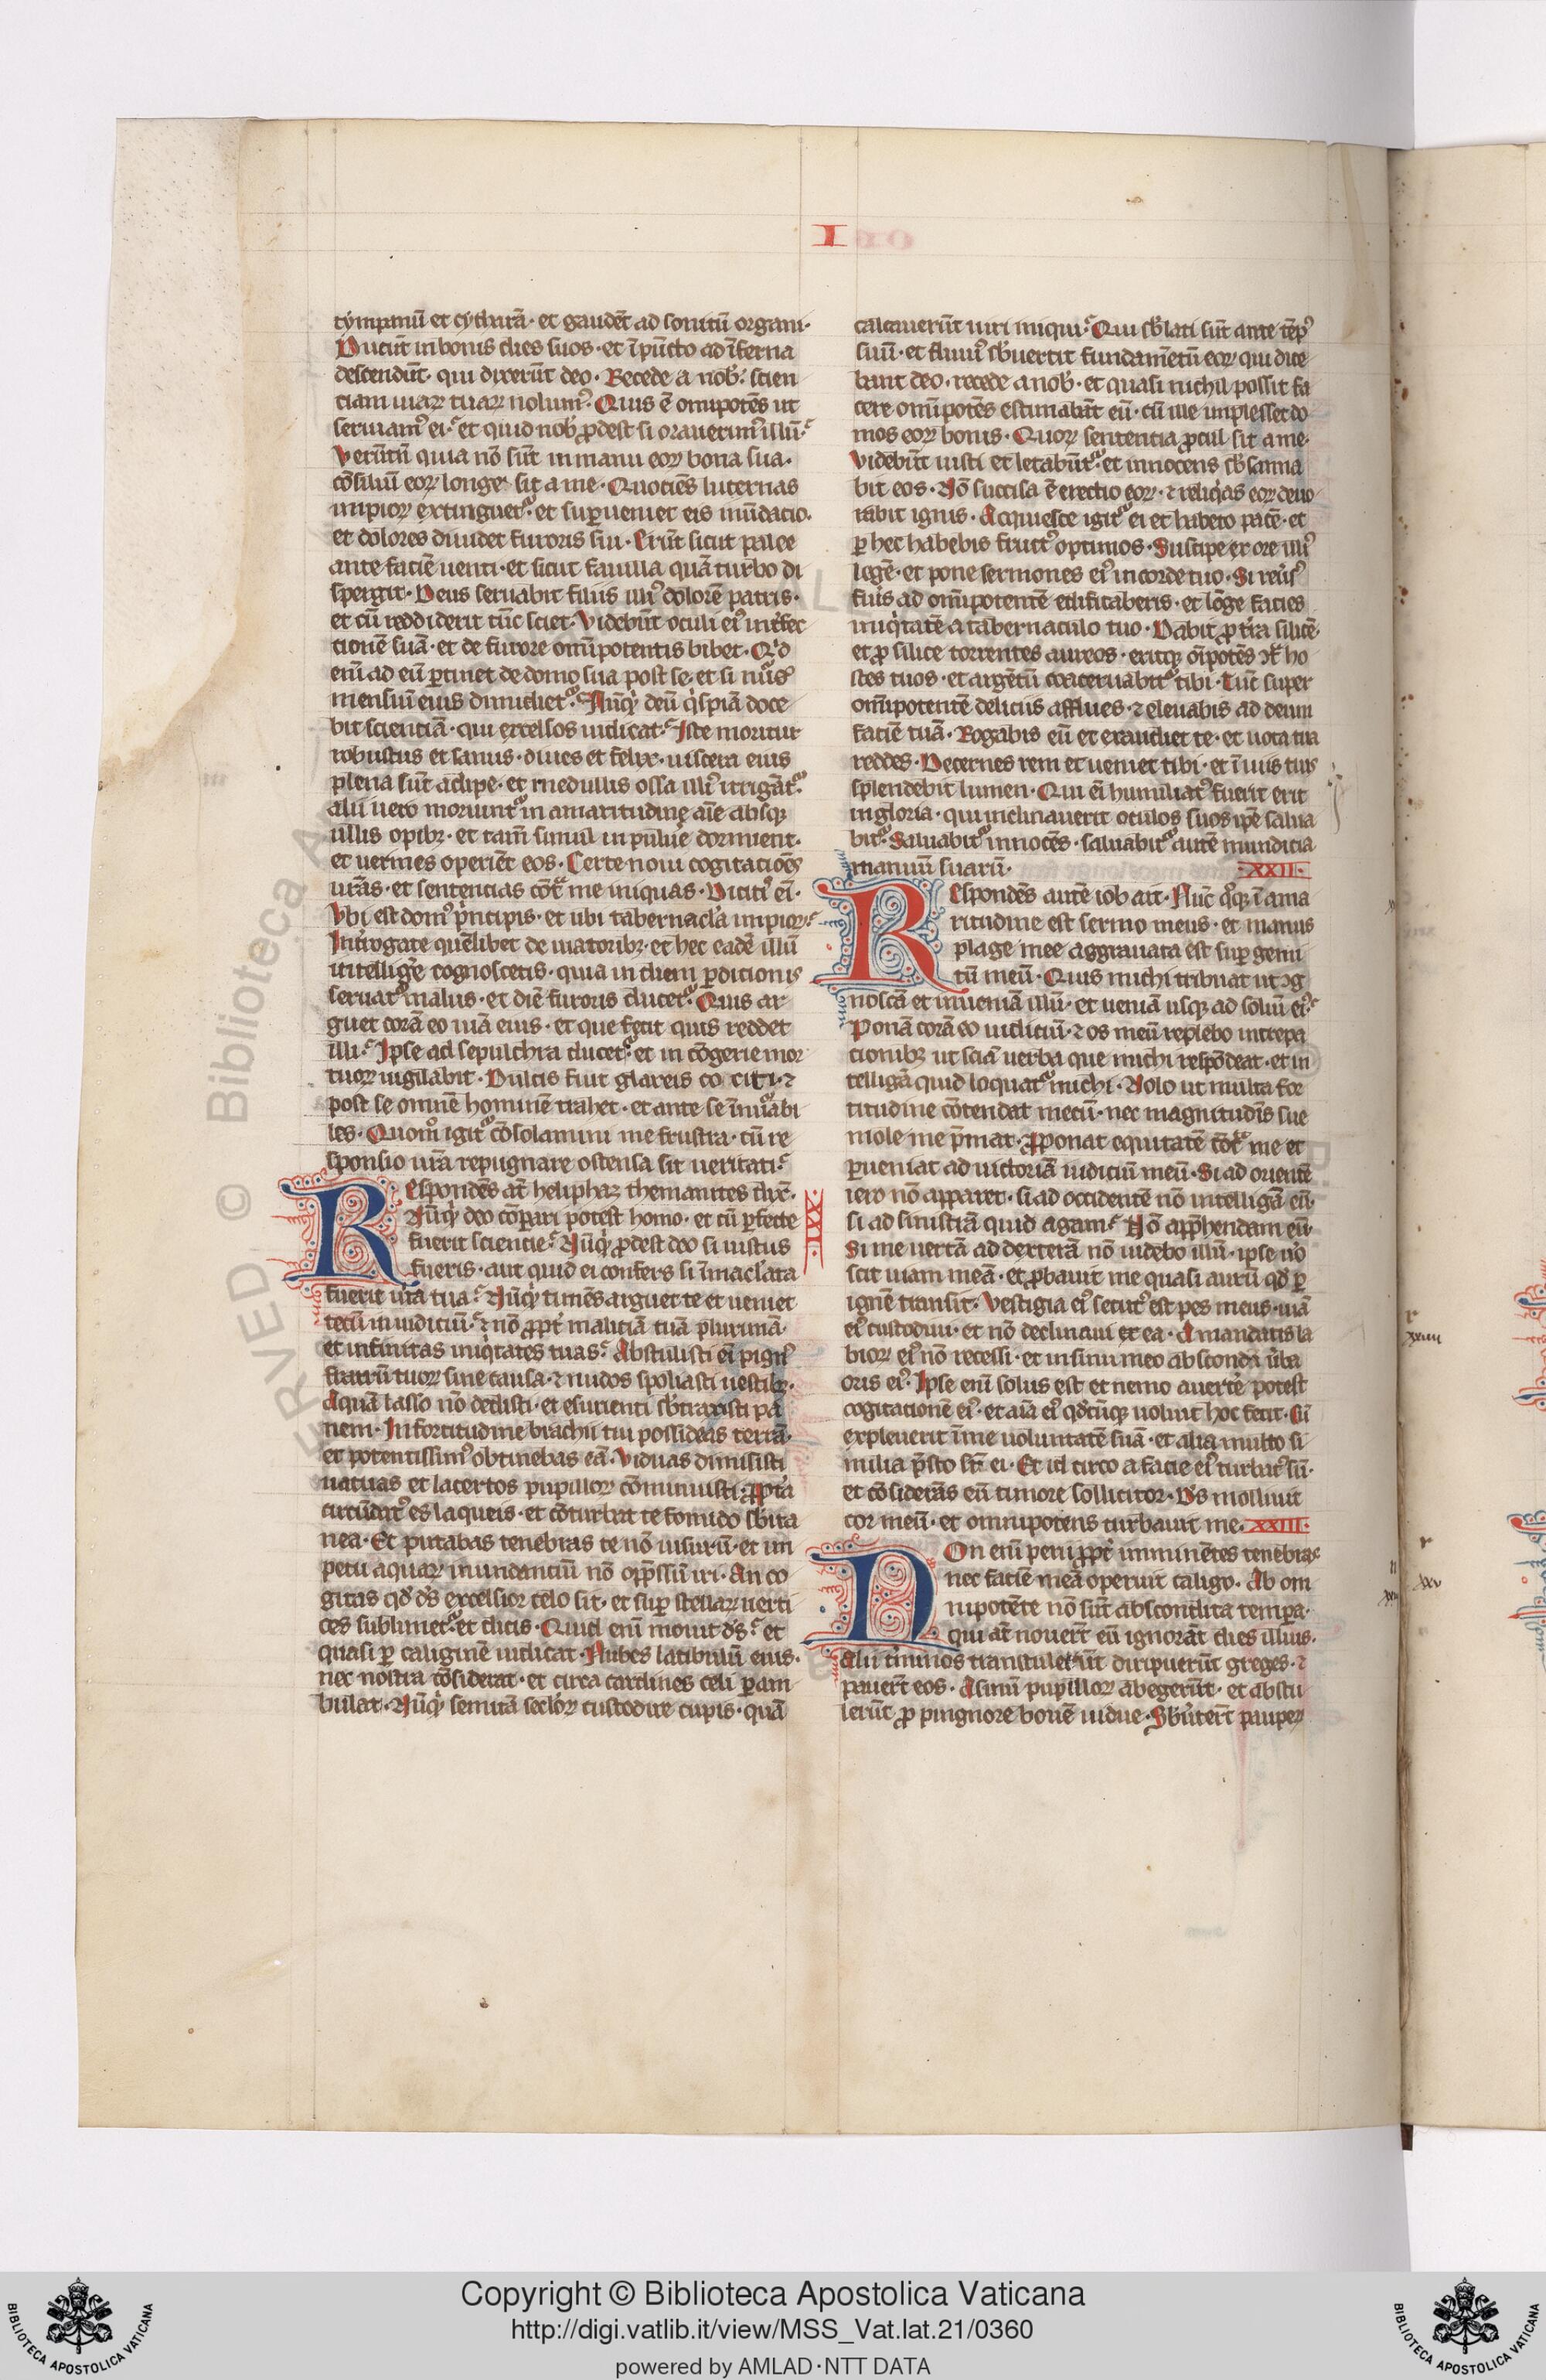 I
tympanũ et cytharã· et gaudẽt ad sonitũ organi·
Ducũt in bonis dies suos· et ĩ pũcto ad ĩferna
descendũt· qui dixerũt deo· Recede a nob᷒· scien
ciam uiarꝝ tuarꝝ nolumꝰ· Quis ẽ omipotẽs ut
seruiamꝰ ei· et quid nob ꝓdest si orauerimꝰ illũ·
Verũtñ quia nõ sũt in manu eorꝝ bona sua·
cõsiliũ eorꝝ longe sit a me· Quociẽs lucernas
impiorꝝ extinguetᷣ· et suꝑueniet eis inũdacio·
et dolores diuidet furoris sui· Erũt sicut palee
ante faciẽ uenti· et sicut fauilla quã turbo di
spergit· Deus seruabit filiis illiꝰ dolorẽ patris·
et cũ reddiderit tũc sciet· Videbũt oculi eiꝰ int̾fec
tionẽ suã· et de furore om̃ipotentis bibet· Qͥd
eni᷒ ad eũ ꝑtinet de domo sua post se· et si nũꝰ
mensiũ eius dimidietᷣ· Nũqͥ deũ qͥspiã doce
bit scienciã· qui excelsos iudicat· Iste moritur
robustus et sanus· diues et felix· uiscera eius
plena sũt adipe· et medullis ossa illiꝰ irrigãtᷣ·
alii uero moriuntᷣ in amaritudine aĩe absqꝫ
ullis opibꝫ· et tam̃ simul in puluẽ dormient·
et uermes operiẽt eos· Certe noui cogitacioẽs
ur̃as· et sentencias cõtͣ me iniquas· Dicitis ei᷒·
Vbi est domꝰ pͥncipis· et ubi tabernacl̃a impiorꝝ·
Int̾rogate quẽlibet de uiatoribꝫ· et hec eadẽ illũ
intelliḡe cognoscetis· quia in diem ꝑdicionis
seruatᷣ malus· et diẽ furoris ducetᷣ· Quis ar
guet corã eo uiã eius· et que fecit quis reddet
illi· Ipse ad sepulchra ducetᷣ· et in cõgerie mor
tuorꝝ uigilabit· Dulcis fuit glareis co citi· ⁊
post se omnẽ hominẽ trahet· et ante se ĩnũabi
les· Quom̃ igitᷣ cõsolamini me frustra· cũ re
sponsio ur̃a repugnare ostensa sit ueritati·
Respondẽs at̃ heliphaz themanites dix̃·
Nũqͥ deo cõꝑari potest homo· et cũ ꝑfecte
fuerit sciencie· Nũqͥ ꝓdest deo si iustus
fueris· aut quid ei confers si ĩmacl̃ata
fuerit uita tua· Nũqͥ timẽs arguet te et ueniet
tecũ in iudiciũ· ⁊ nõ ꝓpt̾ maliciã tuã plurimã·
et infinitas iniqͥtates tuas· Abstulisti ei᷒ pignꝰ
fratrũ tuorꝝ sine causa· ⁊ nudos spoliasti uestibꝫ·
Aquã lasso nõ dedisti· et esurienti sb̾traxisti pa
nem· In fortitudine brachii tui possideas terrã·
et potentissimꝰ obtinebas eã· Viduas dimisisti
uacuas et lacertos pupillorꝝ cõminuisti· Ꝓpt̾ea
circũdatꝰ es laqueis· et cõturbat te fomido sb̾ita
nea· Et putabas tenebras te nõ uisurũ· et im
petu aquarꝝ inundanciũ nõ opp̃ssũ iri· An co
gitas qd̾ ds̃ excelsior celo sit· et suꝑ stellarꝝ uerti
ces sublimetᷣ· et dicis· Quid eni᷒ nouit ds̃· et
quasi ꝑ caliginẽ iudicat· Nubes latibulũ eius·
nec nostra cõsiderat· et circa cardines celi ꝑam
bulat· Nũqͥ semitã sclorꝝ custodire cupis· quã
XXI·
calcauerũt uiri iniqui· Qui sb̾lati sũt ante tẽpꝰ
suũ· et fluuiꝰ sb̾uertit fundam̃etũ eorꝝ qui dice
bant deo· recede a nob᷒· et quasi nichil possit fa
cere om̃ipotẽs estimabãt eũ· cũ ille implesset do
mos eorꝝ bonis· Quorꝝ sententia ꝓcul sit a me·
Videbũt iusti et letabũtᷣ· et innocens sb̾sanna
bit eos· Nõ succisa ẽ erectio eorꝝ· ⁊ reliqͥas eorꝝ deuo
rabit ignis· Acquiesce igitᷣ ei et habeto pacẽ· et
ꝑ hec habebis fructꝰ optimos· Suscipe ex ore illiꝰ
legẽ· et pone sermones eiꝰ in corde tuo· Si reũsꝰ
fũis ad om̃ipotentẽ edificaberis· et lõge facies
iniqͥtatẽ a tabernaculo tuo· Dabit ꝓ t̾ra silicẽ·
et ꝓ silice torrentes aureos· eritqꝫ om̃ipotẽs ꝯͣ ho
stes tuos· et argẽtũ coaceruabitᷣ tibi· Tũc super
om̃ipotentẽ deliciis afflues· ⁊ eleuabis ad deum
faciẽ tuã· Rogabis eũ et exaudiet te· et uota tua
reddes· Decernes rem et ueniet tibi· et ĩ uiis tuis
splendebit lumen· Qui ei᷒ humiliatꝰ fuerit erit
in gloria· qui inclinauerit oculos suos ip̃e salua
bitᷣ· Saluabitᷣ innocẽs· saluabitᷣ autẽ mundicia
manuũ suarũ· XXII·
Respondẽs autẽ iob ait· Nũc qͦqꝫ ĩ ama
ritudine est sermo meus· et manus
plage mee aggrauata est suꝑ gemi
tũ meũ· Quis michi tribuat ut ꝯg
noscã et inueniã illũ· et ueniã usqꝫ ad soliũ eiꝰ·
Ponã corã eo iudiciũ· ⁊ os meũ replebo increpa
cionibꝫ ut sciã uerba que michi respõdeat· et in
telligã quid loquatᷣ michi· Nolo ut multa for
titudine cõtendat mecũ· nec magnitudis̃ sue
mole me p̃mat· Ꝓponat equitatẽ cõtͣ me et
ꝑueniat ad uictoriã iudiciũ meũ· Si ad orientẽ
iero nõ apparet· si ad occidentẽ nõ intelligã eũ·
si ad sinistrã quid agam· Nõ app̃hendam eũ·
Si me uertã ad dexterã nõ uidebo illũ· ipse uͦo
scit uiam meã· et ꝓbauit me quasi aurũ qd̾ ꝑ
ignẽ transit· Vestigia eiꝰ secutꝰ est pes meus· uiã
eiꝰ custodiui· et nõ declinaui ex ea· A mandatis la
biorꝝ eiꝰ nõ recessi· et in sinu meo abscondi ũba
oris eiꝰ· Ipse eni᷒ solus est et nemo auertẽ potest
cogitationẽ eiꝰ· et aĩa eiꝰ qd̾cũqꝫ uoluit hoc fecit· Cũ
expleuerit ĩ me uoluntatẽ suã· et alia multo si
milia p̃sto st̃ ei· Et id circo a facie eiꝰ turbatꝰ sũ·
et cõsiderãs eũ timore sollicitor· Ds̃ molliuit
cor meũ· et omnipotens turbauit me· XXIII·
Non eni᷒ perii ꝓpt̾ imminẽtes tenebras
nec faciẽ meã operuit caligo· Ab om
nipotẽte nõ sũt abscondita tempa·
qui at̃ nouer̃t eũ ignorãt dies illius·
Alii t̾minos transtulerũt diripuerũt greges· ⁊
pauer̃t eos· Asinũ pupillorꝝ abegerũt· et abstu
lerũt ꝓ pingnore bouẽ uidue· Sb̾uter̃t pauperꝝ
Copyright © Biblioteca Apostolica Vaticana
http://digi.vatlib.it/view/MSS_Vat.lat.21/0360
powered by AMLAD·NTT DATA
BIBLIOTECA APOSTOLICA VATICANA
BIBLIOTECA APOSTOLICA VATICANA